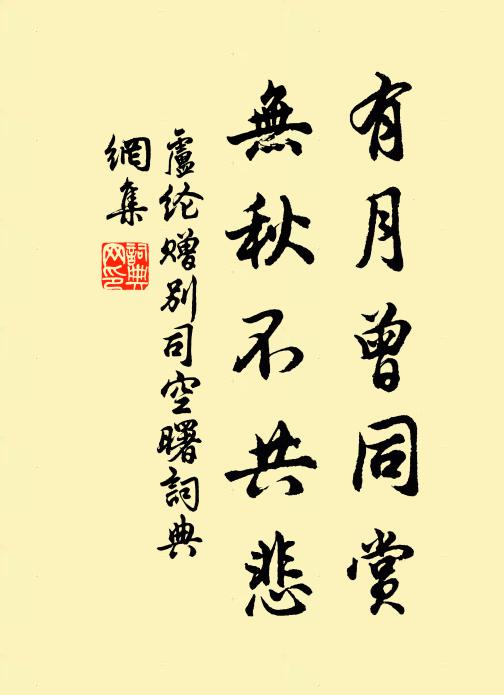 有月曾同賞
無秋不共悲
盧纶赠别司空曙詞典
網集
詞典
网印